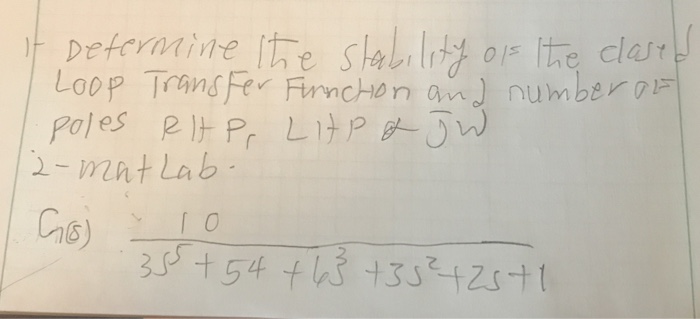 1- Determine the stability of the closed
Loop Transfer Function and number of
poles RHP, LHP & jw
2-matLab.
G(s) 10
3s^5 + s4 + 6s^3 + 3s^2 + 2s + 1